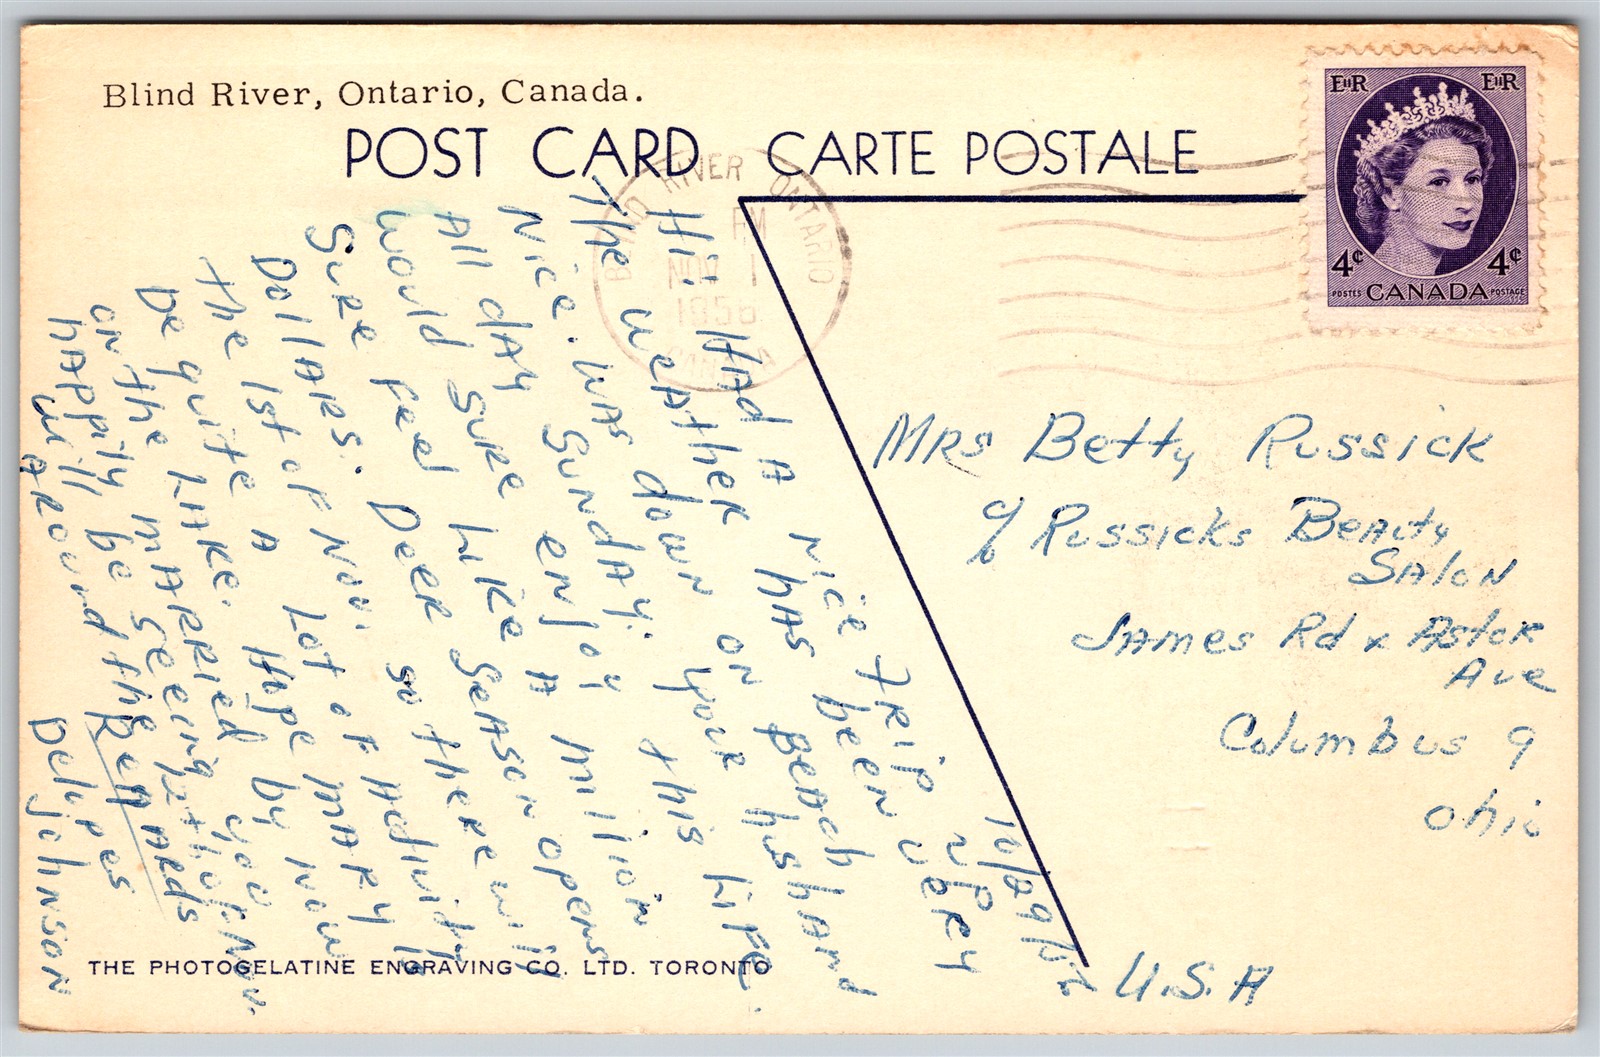 Blind River, Ontario, Canada.
POST CARD CARTE POSTALE
BLIND RIVER ONTARIO
PM
NOV 1
1956
CANADA
EIIR EIIR
4¢ 4¢
POSTES CANADA POSTAGE
10/29/56
Hi: Had a nice trip up
The weather has been very
Nice. Was down on Beach
All day Sunday. your husband
Would sure enjoy this Life.
Sure feel Like a million
Dollars. Deer season opens
the 1st of Nov. so there will
be quite a Lot of activity
on the Lake. Hope Mary is
happily married by now
will be seeing you
around the 12th of Nov.
Regards
Delores
Johnson
Mrs Betty Russick
c/o Russicks Beauty
Salon
James Rd & Astor
Ave
Columbus 9
Ohio
U.S.A
THE PHOTOGELATINE ENGRAVING CO. LTD. TORONTO